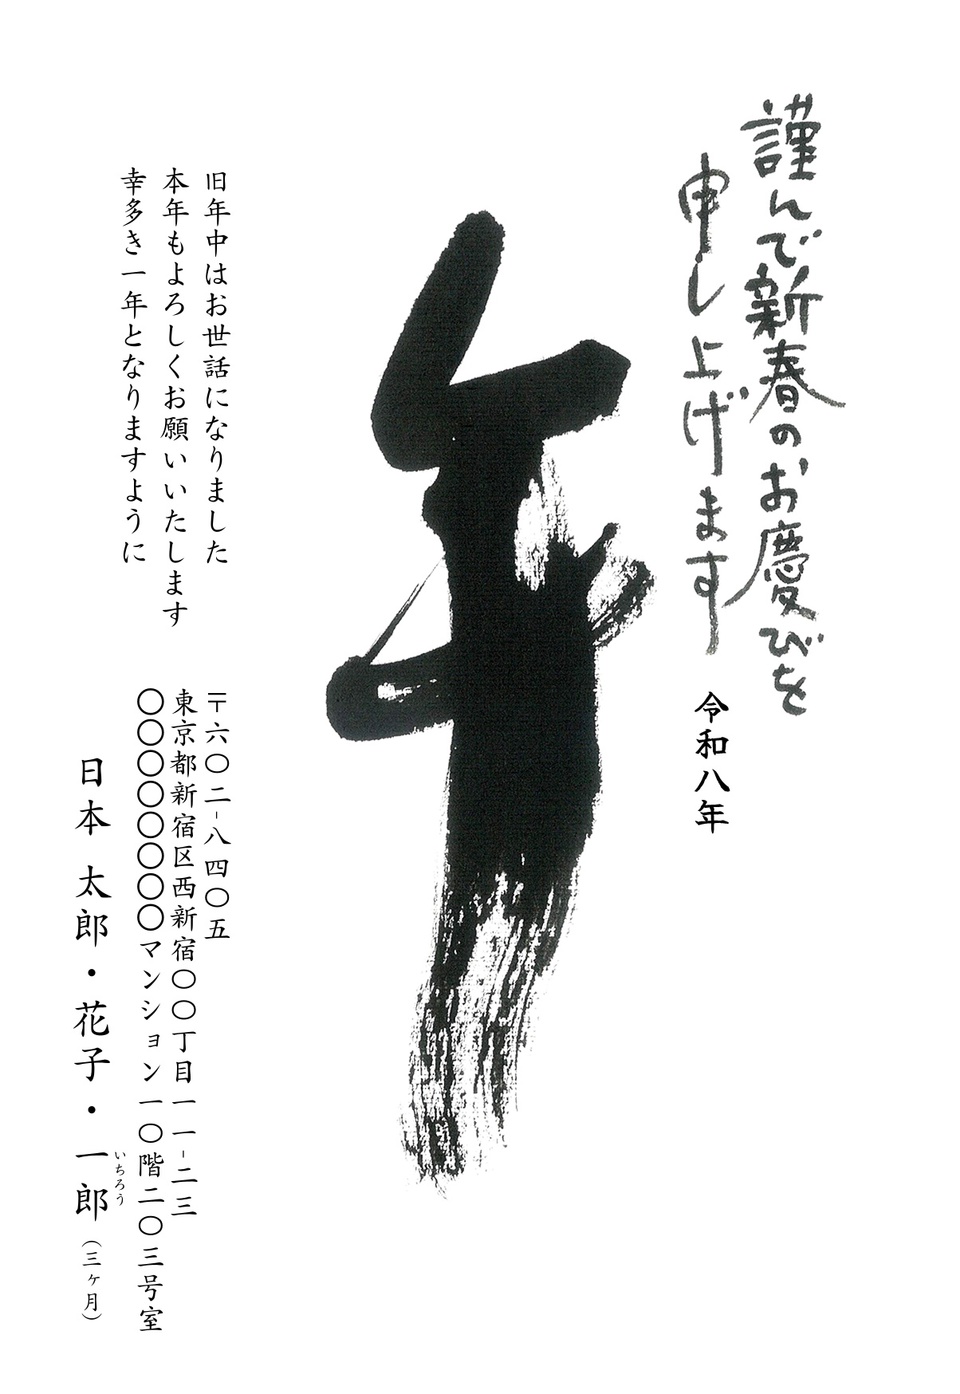 謹んで新春のお慶びを
申し上げます
令和八年
午
旧年中はお世話になりました
本年もよろしくお願いいたします
幸多き一年となりますように
〒六〇二-八四〇五
東京都新宿区西新宿〇〇丁目一一-二三
〇〇〇〇〇〇〇〇マンション一〇階二〇三号室
日本 太郎・花子・一郎（三ヶ月）
いちろう